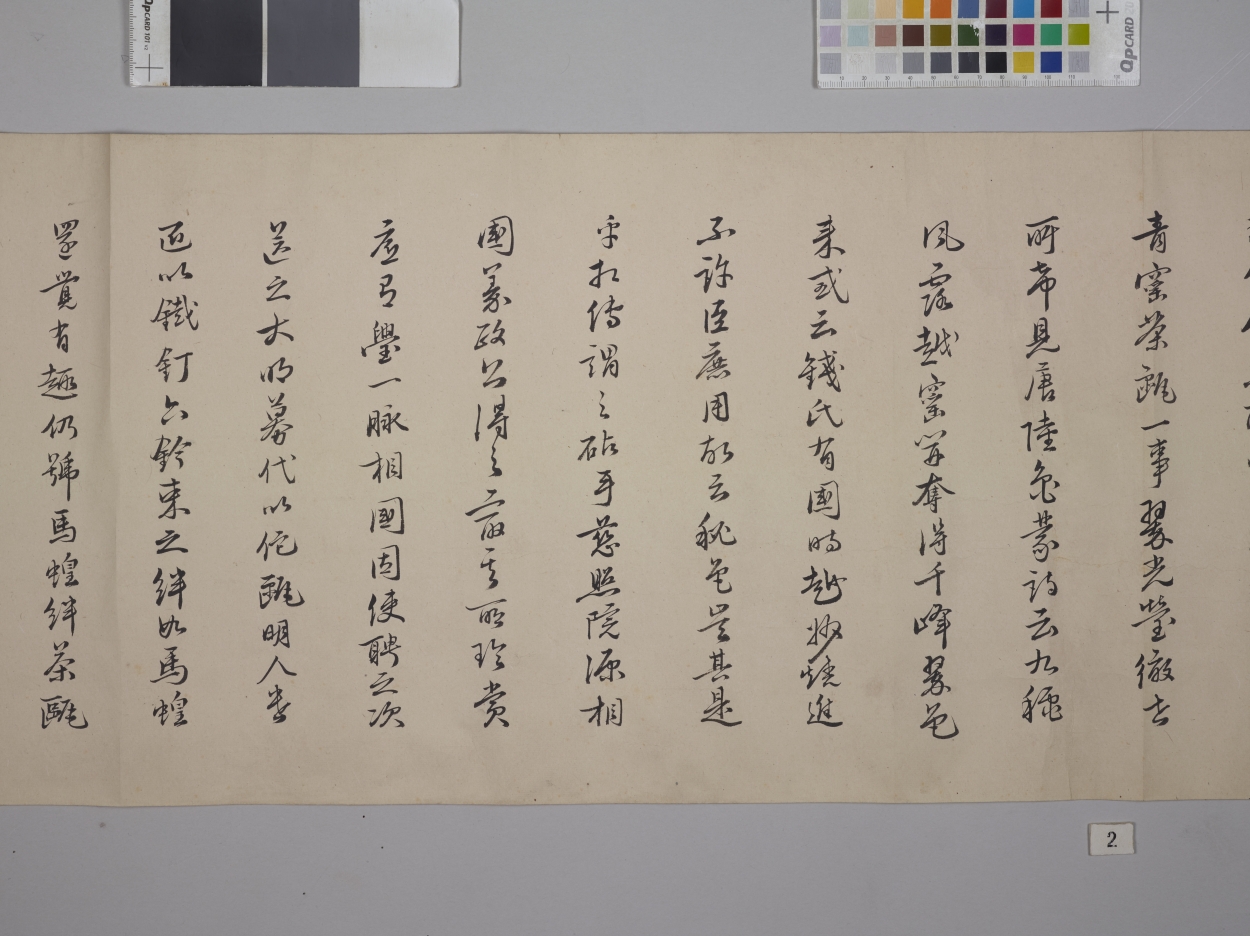 青窯茶甌一事翠光瑩徹世
所希見唐陸龜蒙詩云九穐
風露越窯開奪得千峰翠色
来或云錢氏有國時越州燒進
不許臣庶用故云秘色豈其是
乎相傳謂之砧手慈照院源相
國義政公得之最其所珍賞
底有璺一脉相國因使聘之次
送之大明募代以佗甌明人遣
匠以鐵釘六鈐束之絆如馬蝗
還覺有趣仍號馬蝗絆茶甌
QpCARD 101
QpCARD
2